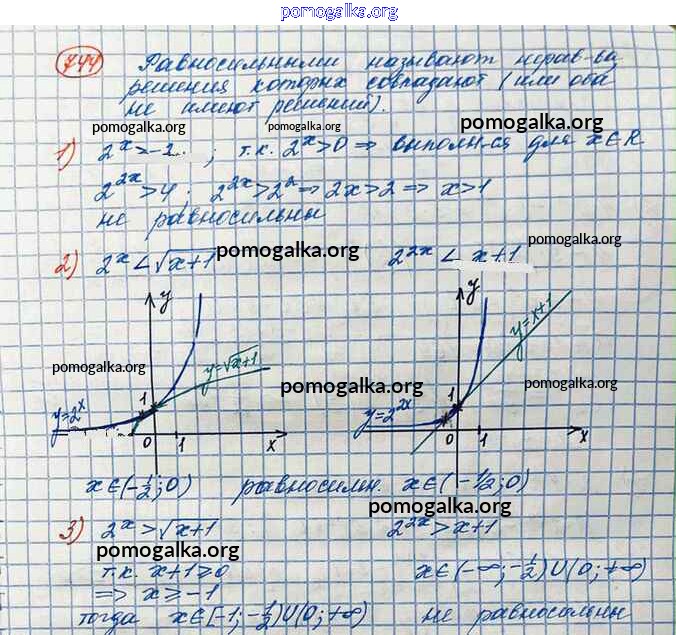 pomogalka.org
744 Равносильными называют нерав-ва
решения которых совпадают (или оба
не имеют решений).
pomogalka.org pomogalka.org
1) 2^x > -2 ; т.к. 2^x > 0 ⇒ выполн-ся для x∈R
2^{2x} > 4 ; 2^{2x} > 2^2 ⇒ 2x > 2 ⇒ x > 1
не равносильны
pomogalka.org
2) 2^x < √x+1 pomogalka.org 2^{2x} < x+1
y y
y=x+1
pomogalka.org y=√x+1
pomogalka.org pomogalka.org
1 1
y=2^x y=2^{2x}
0 1 x 0 1 x
x∈(-1/2; 0) равносильн. x∈(-1/2; 0)
pomogalka.org
3) 2^x > √x+1 2^{2x} > x+1
pomogalka.org
т.к. x+1 ≥ 0 x∈(-∞; -1/2)∪(0; +∞)
⇒ x ≥ -1
тогда x∈[-1; -1/2)∪(0; +∞) не равносильны